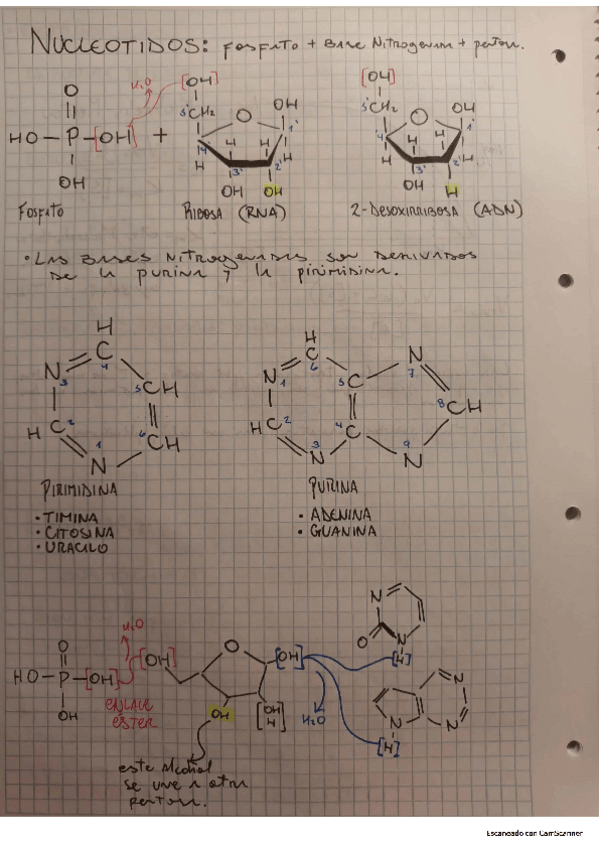 NUCLEOTIDOS: FOSFATO + BASE NITROGENADA + pentosa.
O
HO — P — [OH] H₂O
OH
+
[OH]
5'CH₂ O OH
4' 1'
H H H H
3' 2'
OH OH
[OH]
5'CH₂ O OH
4 1'
H H H H
3' 2'
OH H
Fosfato RIBOSA (RNA) 2-DESOXIRRIBOSA (ADN)
• LAS BASES NITROGENADAS SON DERIVADOS
DE LA PURINA Y LA PIRIMIDINA.
H
C
4
N
3
5 CH
H C 2
6 CH
1
N
H
C
6
N
1
5 C
N
7
8 CH
H C 2
4 C
N
3
9
N
PIRIMIDINA PURINA
• TIMINA • ADENINA
• CITOSINA • GUANINA
• URACILO
O
HO — P — [OH]
OH
H₂O
[OH]
ENLACE
ÉSTER
O
[OH]
OH
[OH
H]
H₂O
N
O
N
[H]
N
N
N
[H]
este alcohol
se une a otra
pentosa.
Escaneado con CamScanner